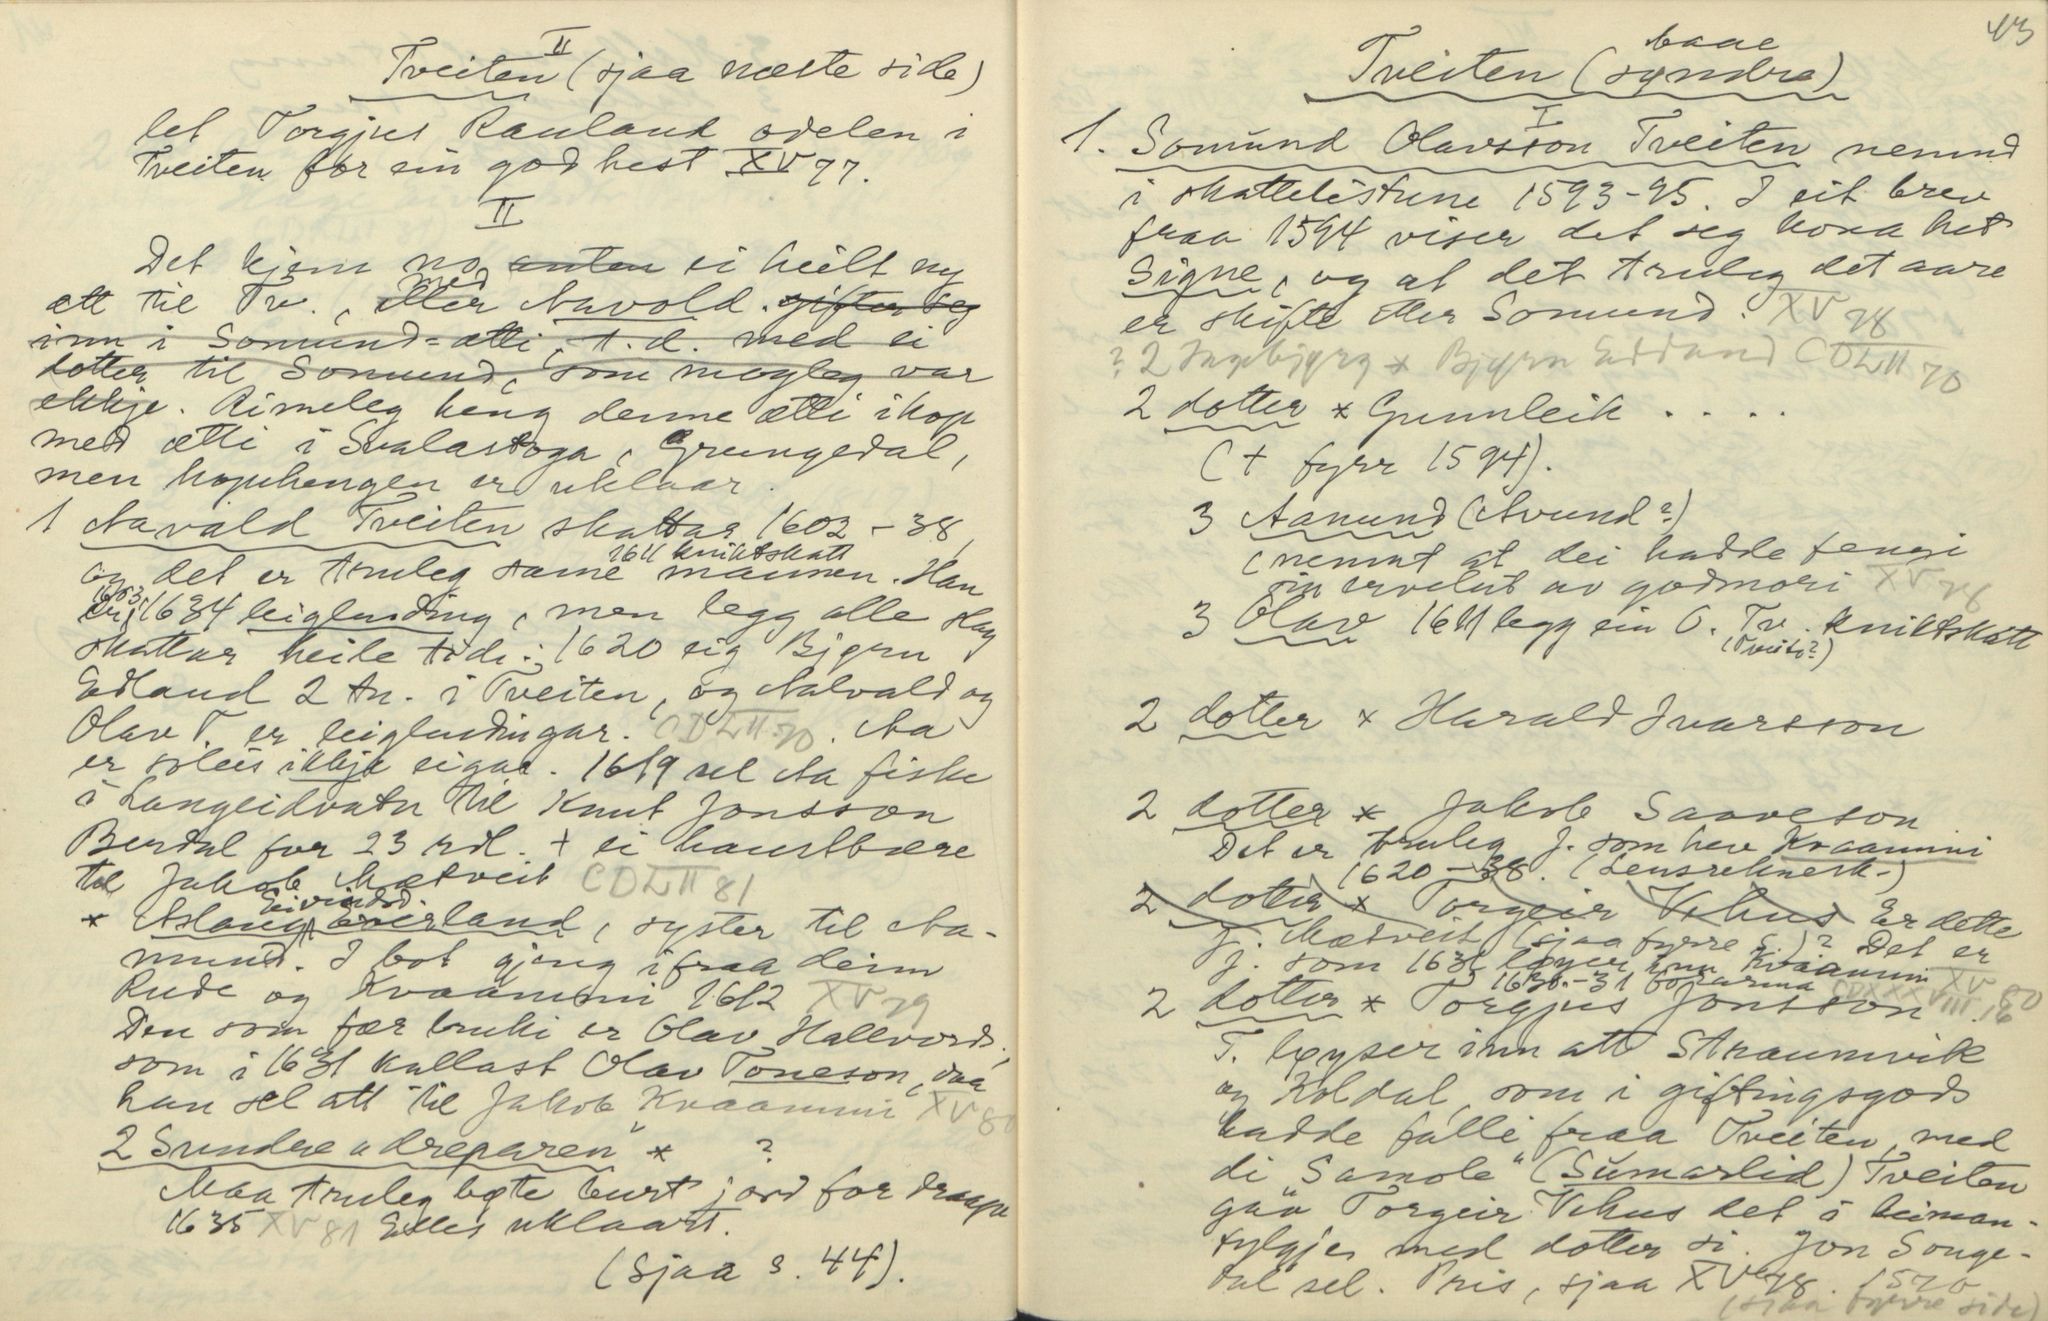 II
Tveiten (sjaa næste side)
let Torgjus Rauland odelen i
Tveiten for ein god hest XV 77.
II
Det kjem no anten ei heilt ny
ætt til Tv., eller med Aavold. gifter seg
inn i Somund-ætti, t.d. med ei
dotter til Somund, som mogleg var
ekkje. Rimeleg heng denne ætti ihop
med ætti i Svalastoga, Grungedal,
men hophengen er uklaar.
1 Aavald Tveiten skattar 1602-38,
1611 kniktskatt
og det er truleg same mannen. Han
er 1603, 1634 leiglending, men legg alle slag
skattar heile tidi; 1620 eig Bjørn
Edland 2 tn. i Tveiten, og Aalvald og
Olav T. er leiglendingar. CDLII 70. Aa
er soleis ikkje eigar. 1619 sel Aa fiske
i Langeidvatn til Knut Jonsson
Berdal for 23 rdl. + ei haustbære
til Jakob Mætveit CDLII 81
Eivindsd
* Aslaug Øverland, syster til Aa-
mund. I bot gjeng ifraa deim
Rude og Kvaammi 1612 XV 79
Den som fær bruki er Olav Hallvords.,
som i 1631 kallast Olav Toneson, daa
han sel att til Jakob Kvaammi XV 80
2 Sundre "dreparen" * ?
Maa truleg bøte burt jord for draape
1635 XV 81 Elles uklaart.
(Sjaa s. 44).
43
Tveiten (baae syndre)
I
1. Somund Olavsson Tveiten nemnd
i skattelistune 1593-95. I eit brev
fraa 1594 viser det seg kona het
Signe, og at det truleg det aare
er skifte etter Somund. XV 78
? 2 Ingebjørg * Bjørn Edland CDLII 70
2 dotter * Gunnleik . . . .
(+ fyrr 1594).
3 Aanund (Avund?)
(nemnt at dei hadde fengi
sin ervelut av godmori XV 78
3 Olav 1611 legg ein O. Tv. kniktskatt
(Tveit?)
2 dotter * Harald Ivarsson
2 dotter * Jakob Saaveson
Det er truleg J. som hev Kvaammi
1620-38. (Lensreknesk.)
2 dotter * Torgeir Vehus Er dette
J. Mætveit (sjaa fyrre s.)? Det er
J. som 1631 løyser inn Kvaammi XV 80
1630-31 CDXXXVIII 16
2 dotter * Torgjus Jonsson
T. løyser inn att Straumvik
og Koldal, som i giftingsgods
hadde falli fraa Tveiten, med
di "Samole" (Sumarlid) Tveiten
gav Torgeir Vehus det i heiman-
fylgje med dotter si. Jon Songe-
dal sel. Pris, sjaa XV 78. 1570
(sjaa fyrre side)